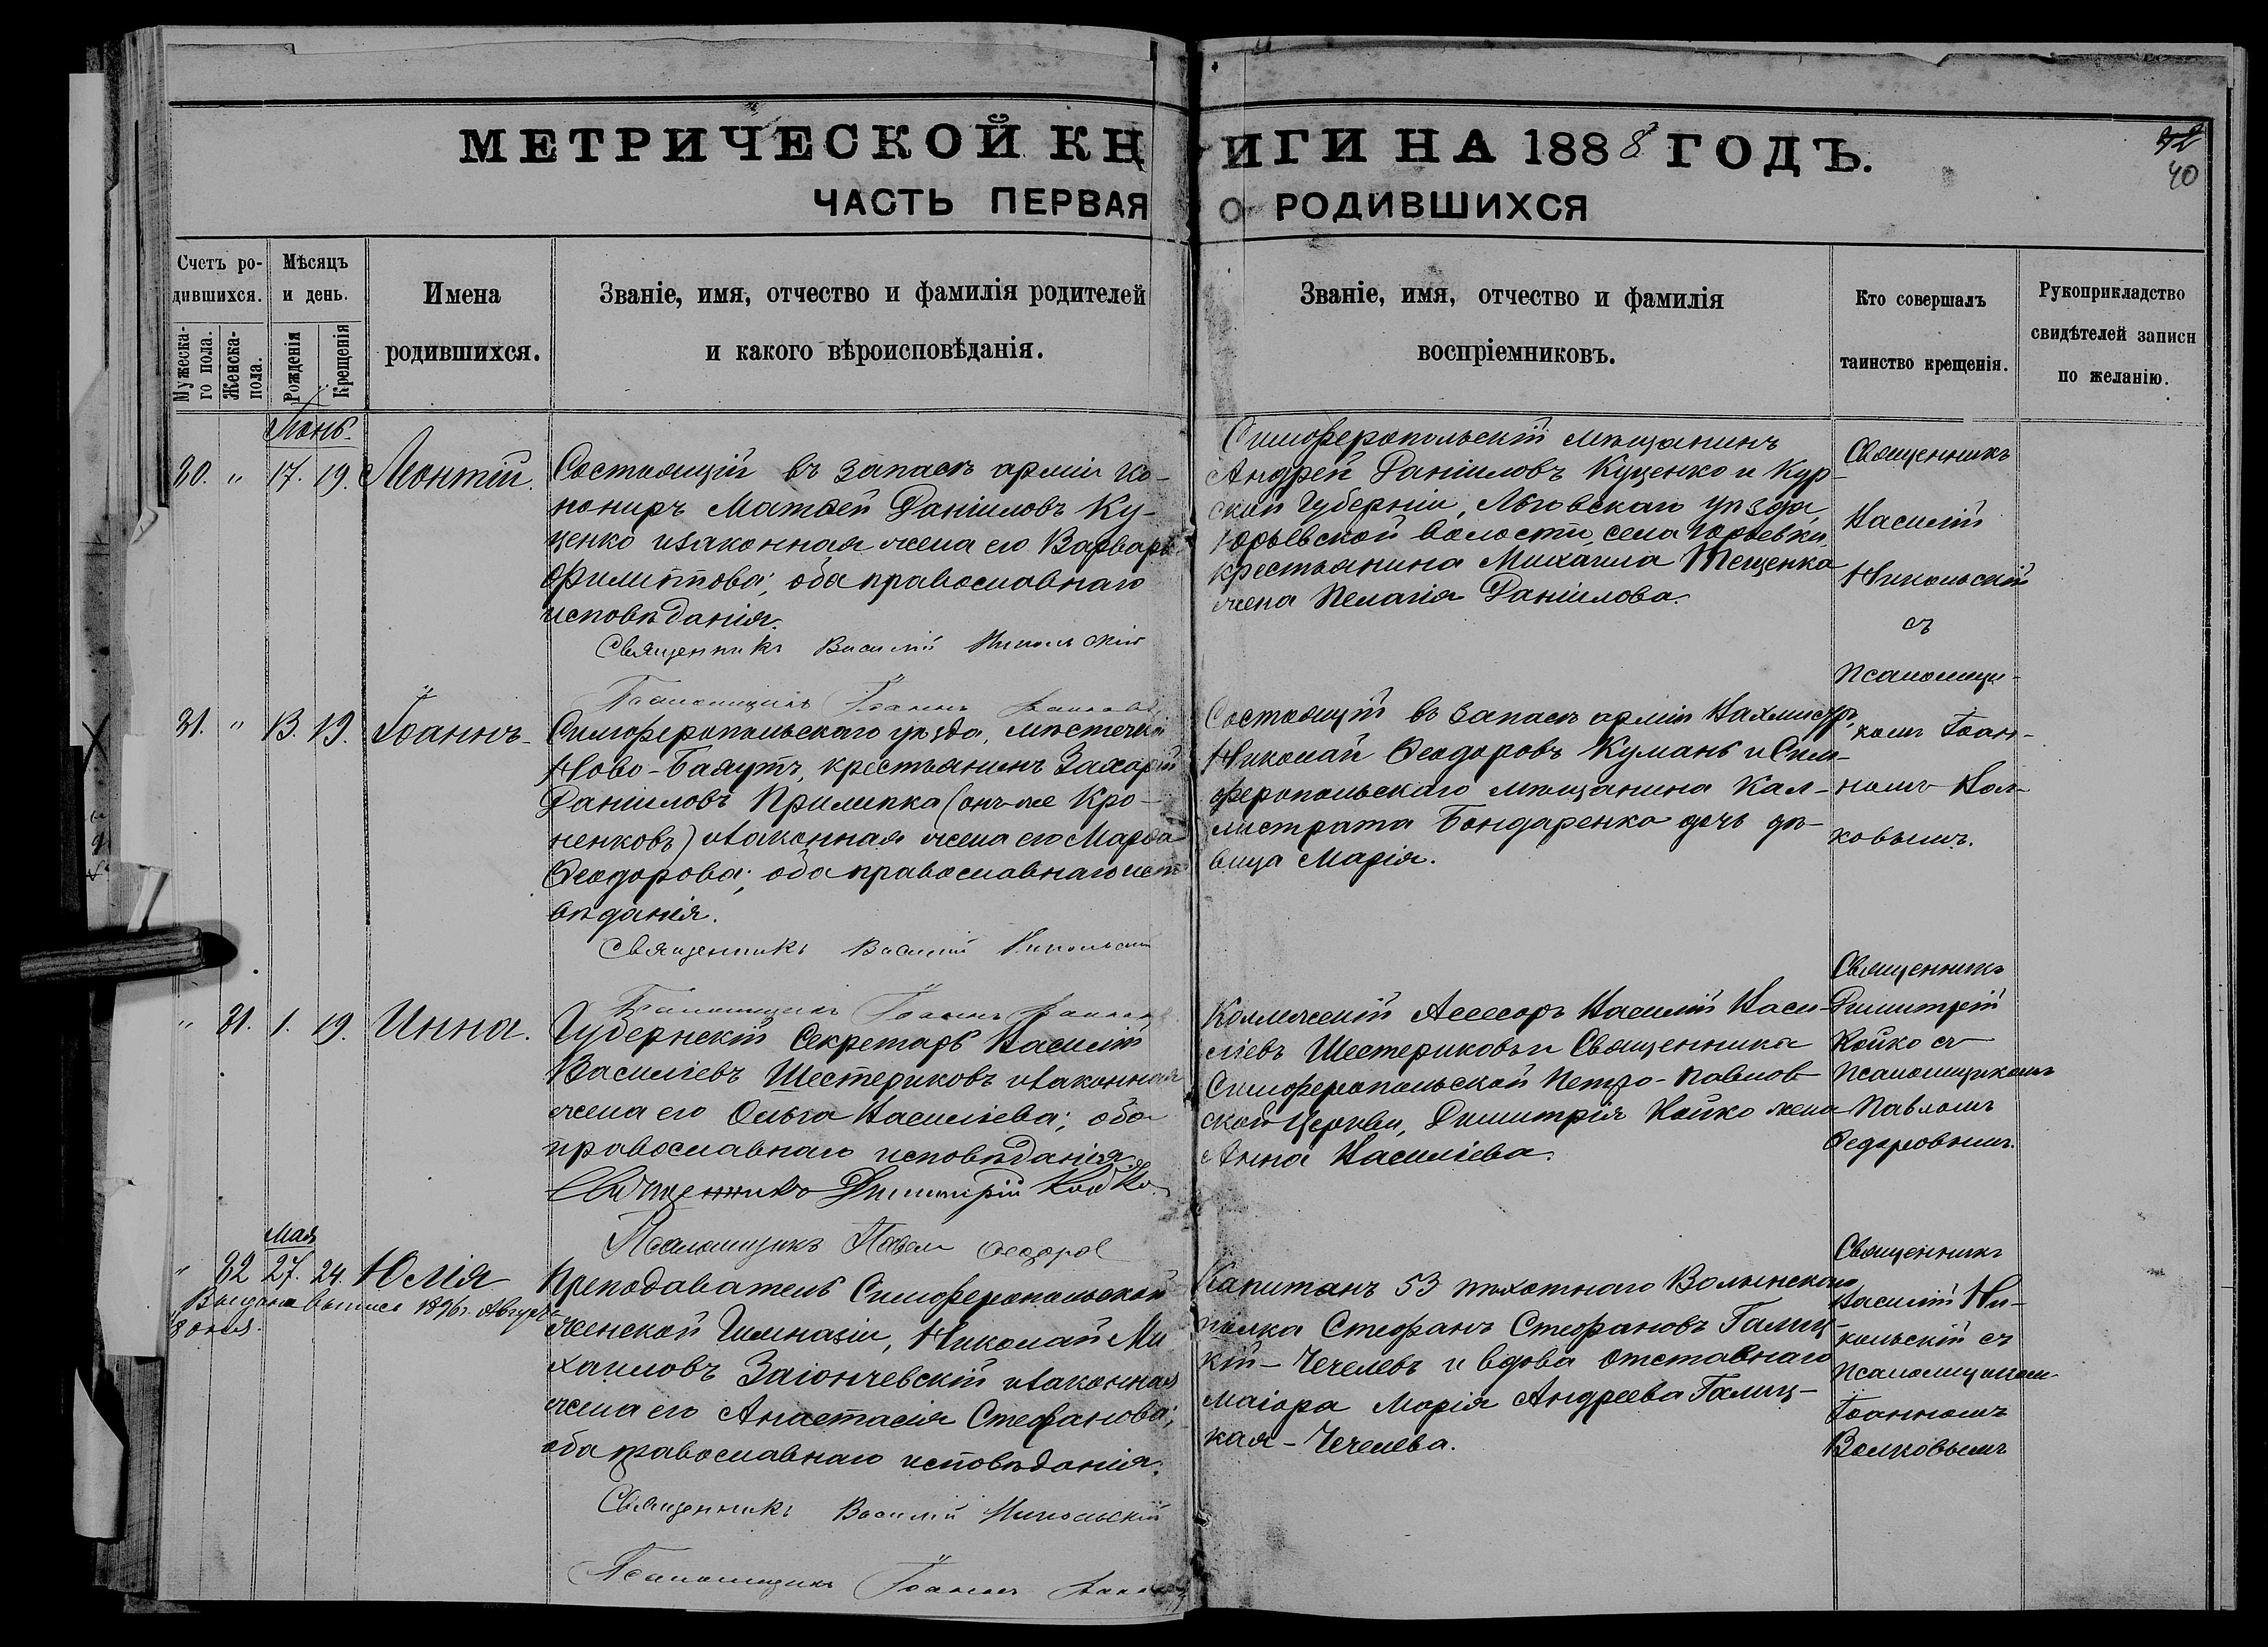 МЕТРИЧЕСКОЙ КНИГИ НА 1888 ГОДЪ.
ЧАСТЬ ПЕРВАЯ О РОДИВШИХСЯ
40
Счетъ родившихся.
Мужеска-го пола.
Женска-пола.
Мѣсяцъ и день.
Рожденія
Крещенія
Имена
родившихся.
Званіе, имя, отчество и фамилія родителей
и какого вѣроисповѣданія.
Званіе, имя, отчество и фамилія
воспріемниковъ.
Кто совершалъ
таинство крещенія.
Рукоприкладство
свидѣтелей записи
по желанію.
Іюнь.
30. " 17. 19. Леонтій.
Состоящій въ запасѣ арміи ка-
нониръ Матѳей Даніиловъ Ку-
ценко и законная жена его Варвара
Филиппова; оба православнаго
исповѣданія.
Священникъ Василій Никольскій
Псаломщикъ Іоаннъ Волковъ
Симферопольскій мѣщанинъ
Андрей Даніиловъ Куценко и Кур-
ской Губерніи, Льговскаго уѣзда,
Юрьевской волости, села Юрьевки,
крестьянина Михаила Тещенка
жена Пелагія Даніилова.
Священникъ
Василій
Никольскій
съ
псаломщи-
комъ Іоан-
номъ Вол-
ковымъ.
31. " 13. 19. Іоаннъ.
Симферопольскаго уѣзда, мѣстечка
Ново-Баяутъ, крестьянинъ Захарій
Даніиловъ Прилипка (онъ-же Кро-
ненковъ) и законная жена его Марѳа
Ѳеодорова; оба православнаго испо-
вѣданія.
Священникъ Василій Никольскій
Псаломщикъ Іоаннъ Волковъ
Состоящій въ запасѣ арміи Вахмистръ
Николай Ѳеодоровъ Кумань и Сим-
феропольскаго мѣщанина Кал-
листрата Бондаренко дочь дѣ-
вица Марія.
" 31. 1. 19. Инна.
Губернскій Секретарь Василій
Василіевъ Шестериковъ и законная
жена его Ольга Василіева; оба
православнаго исповѣданія.
Священникъ Димитрій Койко.
Псаломщикъ Павелъ Ѳеодоров
Коллежскій Асессоръ Василій Васи-
ліевъ Шестериковъ и Священника
Симферопольской Петро-Павлов-
ской Церкви, Димитрія Койко жена
Анна Василіева.
Священникъ
Димитрій
Койко съ
псаломщикомъ
Павломъ
Ѳедоровымъ.
Мая
" 32 27. 24. Юлія
Выдана выпись 1896 г. Августа
8 дня.
Преподаватель Симферопольской
женской Гимназіи, Николай Ми-
хаиловъ Заіончевскій и законная
жена его Анастасія Стефанова;
оба православнаго исповѣданія.
Священникъ Василій Никольскій
Псаломщикъ Іоаннъ Волковъ
Капитанъ 53 пѣхотнаго Волынскаго
полка Стефанъ Стефановъ Галиц-
кій-Чечелевъ и вдова отставнаго
маіора Марія Андреева Галиц-
кая-Чечелева.
Священникъ
Василій Ни-
кольскій съ
псаломщикомъ
Іоанномъ
Волковымъ